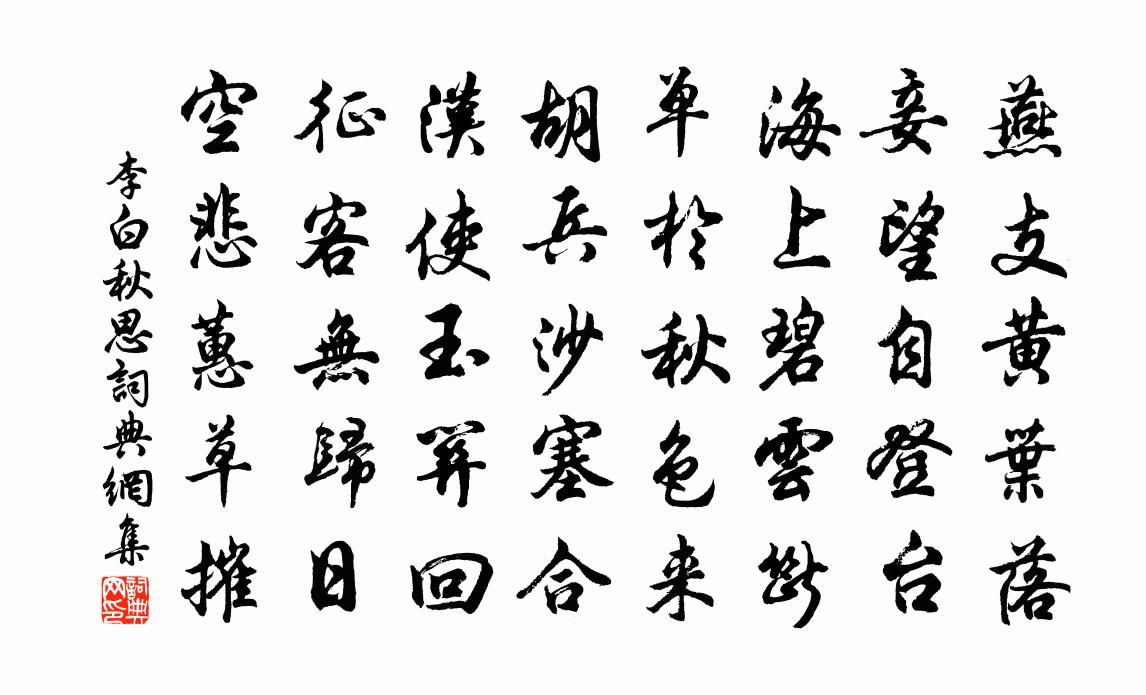 燕支黄葉落
妾望自登台
海上碧雲斷
单於秋色来
胡兵沙塞合
漢使玉關回
征客無歸日
空悲蕙草摧
李白秋思詞典網集
詞典网印